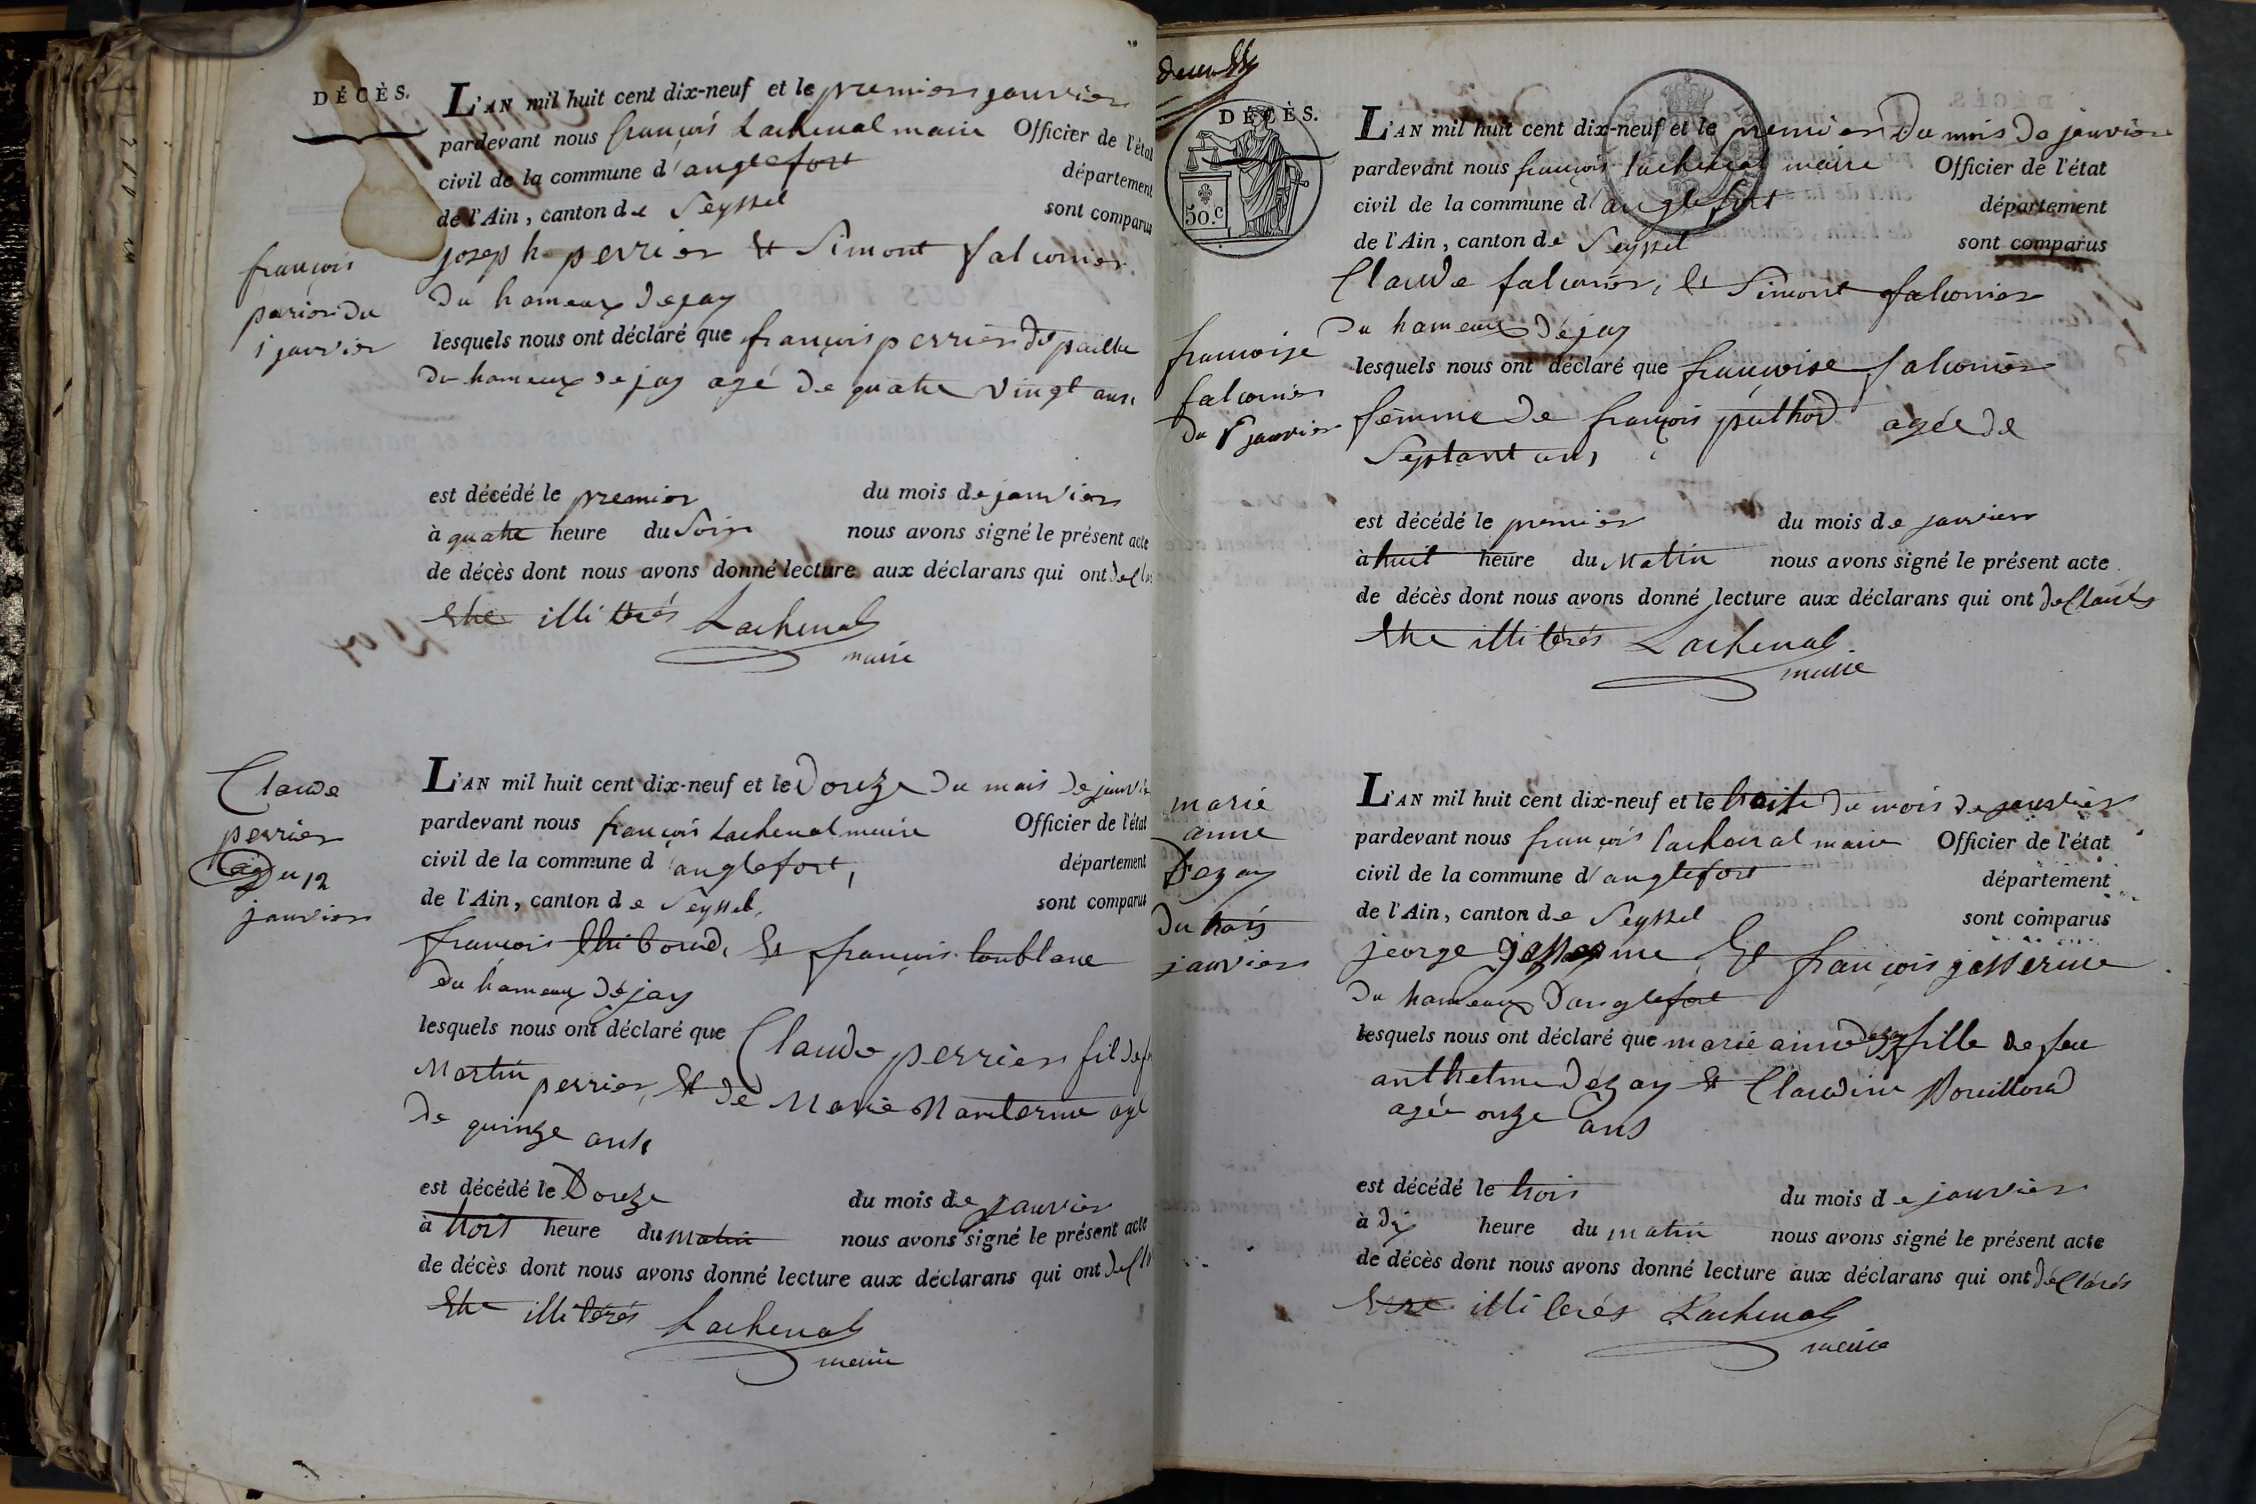 DÉCÈS.
L'AN mil huit cent dix-neuf et le premier janvier
pardevant nous françois Lachenal maire Officier de l'état
civil de la commune d'anglefort département
de l'Ain, canton de Seyssel sont comparus
joseph perrier et Simont falconier
du hameaux dejay
françois
perrier du
1 janvier
lesquels nous ont déclaré que françois perrier
du hameaux dejay agé de quatre vingt ans
est décédé le premier du mois de janvier
à quatre heure du Soir nous avons signé le présent acte
de décès dont nous avons donné lecture aux déclarans qui ont
etre illiterés Lachenal
maire
Claude
perrier
du 12
janvier
L'AN mil huit cent dix-neuf et le Douze du mois de janvier
pardevant nous françois Lachenal maire Officier de l'état
civil de la commune d'anglefort, département
de l'Ain, canton de Seyssel, sont comparus
françois thiboud, et françois
du hameaux dejay
lesquels nous ont déclaré que Claude perrier fil de
Martin perrier, et de Marie Manterme agé
de quinze ans
est décédé le Douze du mois de janvier
à trois heure du matin nous avons signé le présent acte
de décès dont nous avons donné lecture aux déclarans qui ont
etre illiterés Lachenal
maire
DÉCÈS.
50.c
L'AN mil huit cent dix-neuf et le premier Du mois De janvier
pardevant nous françois lachenal maire Officier de l'état
civil de la commune d'anglefort département
de l'Ain, canton de Seyssel sont comparus
Claude falconier, et Simont falconier
du hameaux dejay
francoise
falconier
du 1 janvier
lesquels nous ont déclaré que françoise falconier
femme de françois puthod agée de
Septant ans
est décédé le premier du mois de janvier
à huit heure du Matin nous avons signé le présent acte
de décès dont nous avons donné lecture aux déclarans qui ont declarés
etre illiterés Lachenal
maire
marie
anne
Dezay
du trois
janvier
L'AN mil huit cent dix-neuf et le trois du mois de janvier
pardevant nous françois lachenal maire Officier de l'état
civil de la commune d'anglefort département
de l'Ain, canton de Seyssel sont comparus
jeorge et françois josserme
du hameaux d'anglefort
lesquels nous ont déclaré que marie anne dezay fille de feu
anthelme dezay et Claudine Bouillond
agée onze ans
est décédé le trois du mois de janvier
à dix heure du matin nous avons signé le présent acte
de décès dont nous avons donné lecture aux déclarans qui ont déclarés
etre illiterés Lachenal
maire